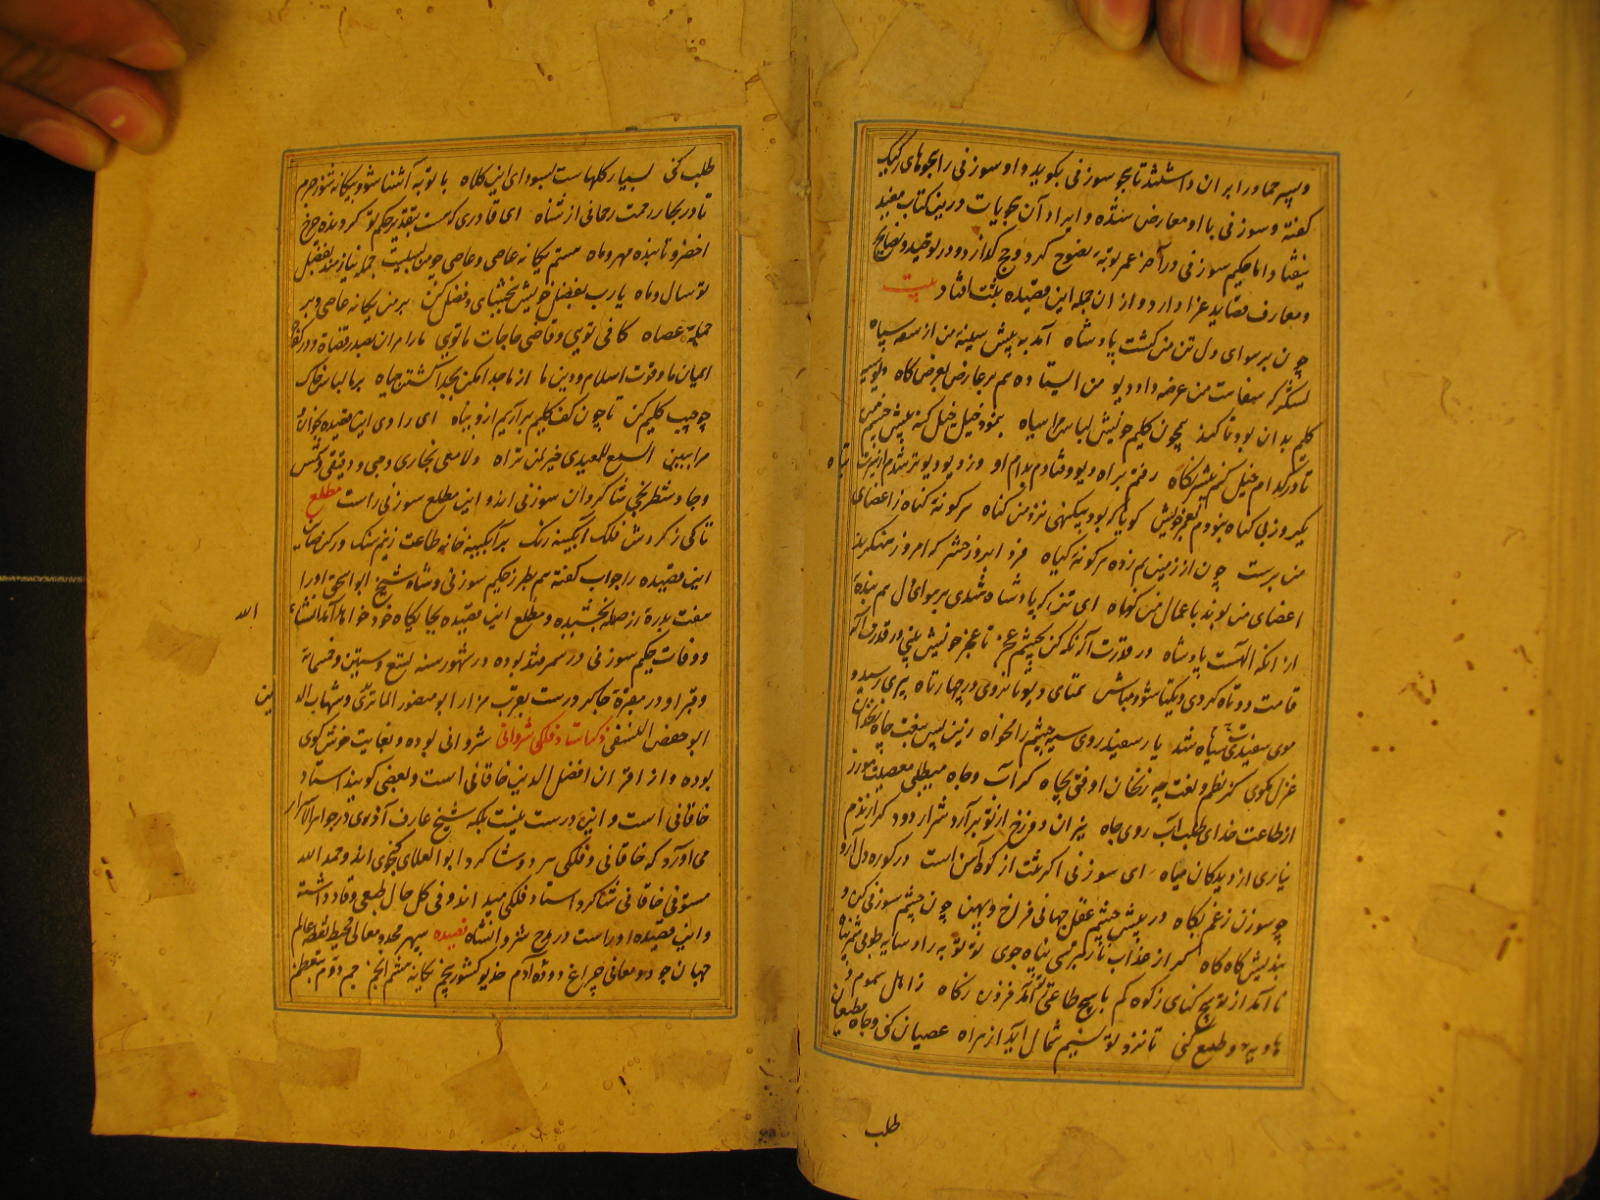 و پسر حماد را بر ان داشتند تا هجو سوزنی بگوید و او سوزنی را هجوهای رکیک
گفته و سوزنی با او معارض شده و ایراد آن هجویات درین کتاب مفید
نیفتاد اما حکیم سوزنی در آخر عمر توبه نصوح کرد و حج گذارد و در توحید و نصایح
و معارف قصاید غرا دارد و از ان جمله این قصیده ثبت افتاد بیت
چون بر سوای دل تن من گشت پادشاه آمد به پیش سینه من از سپاه
لشکر که سفاهت من عرضه داد دیو من ایستاده هم بر عارض بعرض کاه
کلیم بدان بود تا کند همچون کلیم خویش لباس مرا سیاه بنمود خیل خیل گنه پیش چشم من
تا در کدام خیل کنم بیشتر نگاه رفتم براه دیو و فتادم بدام او وز دیو دیوتر شدم از سیرت تباه
یکروز بی گناه نبودم بعمر خویش گویا که بود بیگنهی نزد من گناه هر گونه گناه ز اعضای
من برست چون از زمین نم زده هر گونه گیاه فردا بروز حشر که امروز منکرند
اعضای من بوند باعمال من گواه ای تن که پادشاه شدی بر هوای دل هم بنده
از انکه الهست پادشاه در قدرت اله نگه کن بچشم عجز تا عجز خویش بینی در قدرت اله
قامت دوتاه کردی و یکتا شو و مباش همتای دیو تا نروی در چهارتاه پیری رسید و
موی سفیدی سیاه شد یار سفید روی سیه چشم را مخواه زین پس بغت چاه زنخدان
غزل مگوی کز نظم و نعت چه زنخدان اوفتی بچاه گر آب و جاه میطلبی معصیت مورز
از طاعت خدای طلب آب روی جاه نیران دوزخ از تو برآرد شرار دود گر از ندم
نیاری از دیدگان میاه ای سوزنی اگر تنت از کوه آهن است در کوره دل آر و
چو سوزن ز غم بکاه در پیش چشم عقل جهانی فراخ و پهن چون چشم سوزنی کن و
بندیش گاه گاه گر از عذاب نار بترسی پناه جوی تو توبه را و سایه طوبی شمر پناه
نا آمد از تو هیچ گناهی ز کوه کم با هیچ طاعتی نامد فزون ز کاه ز اهل سموم و
هاویه و طمع کنی تا نزد تو نسیم شمال آید از هراه عصیان کنی و جاه مطیعان
طلب
طلب کنی بسیار کلهاست بسودای این کلاه با توبه آشنا شو و بیگانه شو ز جرم
تا در بحار رحمت رحمان کنی شناه ای قادری که هست بتقدیر حکم تو گردنده چرخ
اخضر و تابنده مهر و ماه هستم یگانه عاصی و عاصی چو من بسیست جمله نیازمند بفضل
تو سال و ماه یارب بفضل خویش ببخشای و فضل کن بر من یگانه عاصی و بر
جمله عصاه کافی توی و قاضی حاجات ما توی ما را مران بصدر قضاة و در کفاه
ایمان ما و قوت اسلام و دین ما از ما جدا مکن بجدا گشتن جباه بر ما لباس خاک
چو جیب کلیم کن تا چون کف کلیم برآریم ازو بیاه ای راوی این قصیده بخوان
مرا ببین السمع للمعیدی خیر لمن تراه و لامعی بخاری و جنی و دقیقی و شمس
و جاد شطرنجی شاگردان سوزنی اند و این مطلع سوزنی راست مطلع
تا کی ز گردش فلک آبگینه رنگ بر آبگینه خانه طاعت زنیم سنگ و رکن صاین
این قصیده را جواب گفته هم بطرز حکیم سوزنی و شاه شیخ ابو اسحق او را
هفت بدره زر صله بخشیده و مطلع این قصیده بجایگاه خود خواهد آمد انشاء
الله
و وفات حکیم سوزنی در سمرقند بوده در شهور سنه تسع و ستین و خمسمائة
و قبر او در مقبره جاکردرست بقرب مزار ابو منصور الماتریدی و شهاب الد
ین
ابو حفص النسفی ذکر استاد فلکی شروانی شروانی بوده و بغایت خوش گوی
بوده و از اقران افضل الدین خاقانی است و بعضی گویند استاد
خاقانی است و این درست نیست بلکه شیخ عارف آذری در جواهر الاسرار
می آورد که خاقانی و فلکی هر دو شاگرد ابو العلای گنجوی اند و حمد الله
مستوفی خاقانی شاگرد استاد فلکی میداند و فی کل حال طبعی وقاد داشته
و این قصیده اوراست در مدح شروانشاه قصیده سپهر مجد و معالی محیط نقطه عالم
جهان جود و معانی چراغ دوده آدم خدیو کشور پنجم یگانه هشتم انجم جم دوم بتعظم